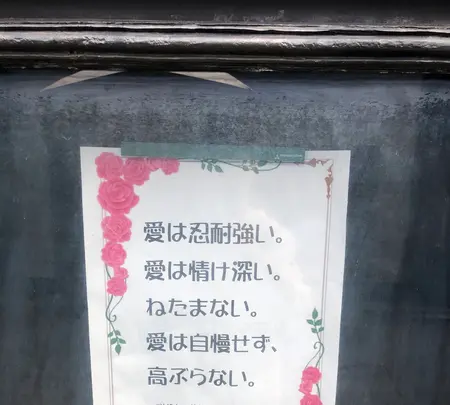 愛は忍耐強い。
愛は情け深い。
ねたまない。
愛は自慢せず、
高ぶらない。